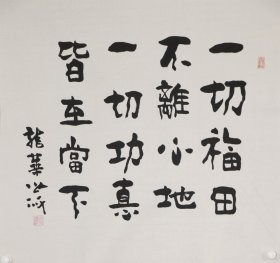 一切福田
不離心地
一切功真
皆在當下
龍華